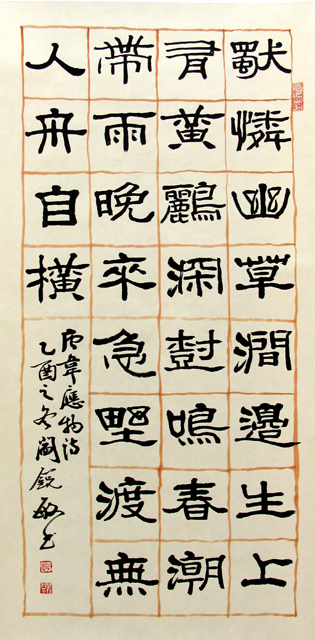 獨憐幽草澗邊生上
有黃鸝深樹鳴春潮
帶雨晚來急野渡無
人舟自橫
韋應物詩
乙酉之冬閻銳敏書